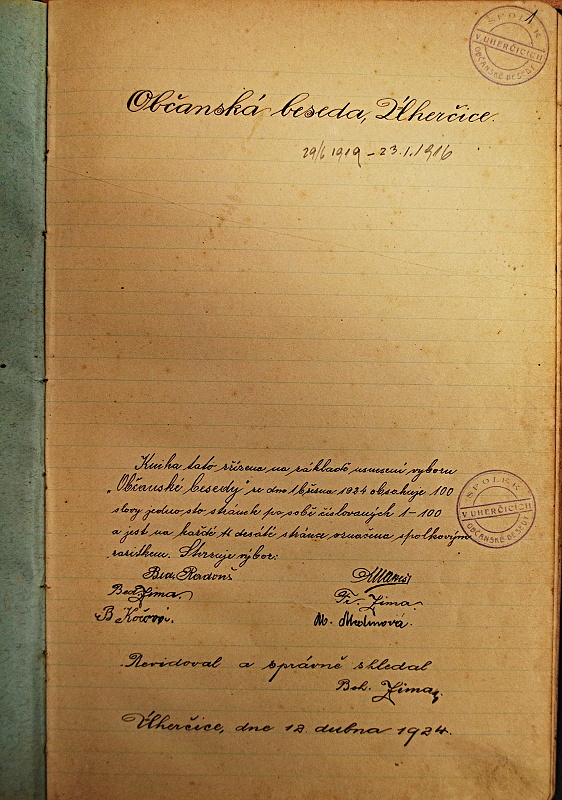 1
SPOLEK
V UHERČICÍCH
OBČANSKÉ BESEDY
Občanská beseda, Úherčice.
29/6 1919 – 23.1.1916
Kniha tato zřízena na základě usnesení výboru
„Občanské besedy" ze dne 1 března 1924 obsahuje 100
slovy jedno sto stránek po sobě číslovaných 1–100
a jest na každé desáté straně označena spolkovým
razítkem. Stvrzuje výbor:
SPOLEK
V UHERČICÍCH
OBČANSKÉ BESEDY
Bed. Radouš
Bed. Zima
Fr. Zima
B Kočová.
M. Medunová.
Revidoval a správně shledal
Boh. Zima
Úherčice, dne 12. dubna 1924.